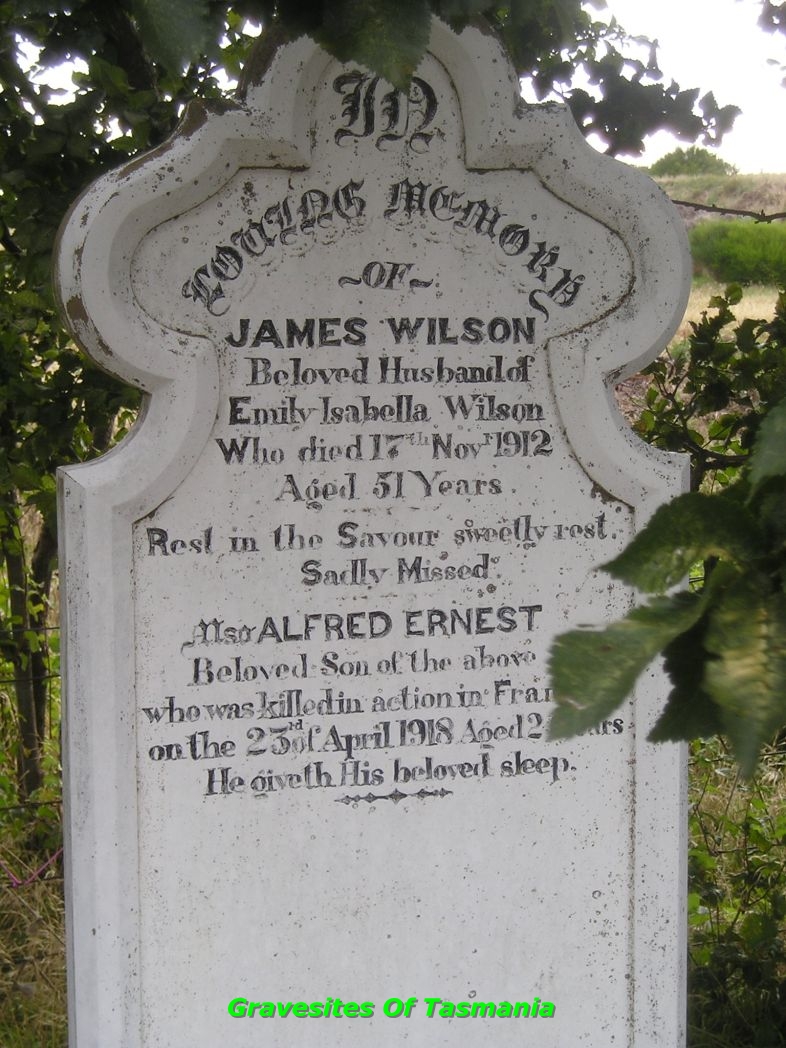 In
Loving Memory
~OF~
JAMES WILSON
Beloved Husband of
Emily Isabella Wilson
Who died 17th Novr 1912
Aged 51 Years.
Rest in the Savour sweetly rest.
Sadly Missed.
Also ALFRED ERNEST
Beloved Son of the above
who was killed in action in Fran
on the 23rd of April 1918 Aged 2
He giveth His beloved sleep.
Gravesites Of Tasmania